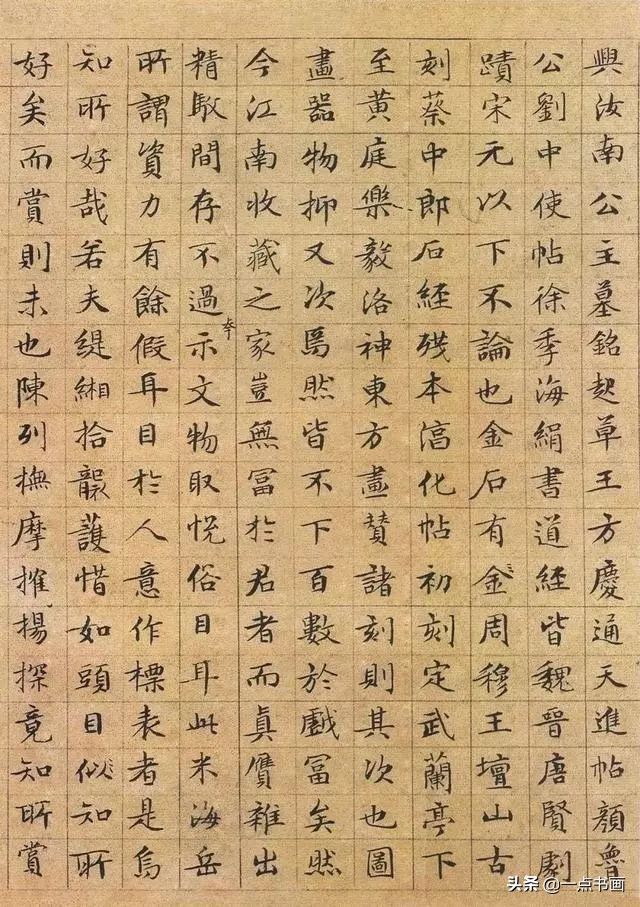 興汝南公主墓銘起草王方慶通天進帖顏魯
公劉中使帖徐季海絹書道經皆魏晉唐賢劇
蹟宋元以下不論也金石有金周穆王壇山古
刻蔡中郎石經殘本淳化帖初刻定武蘭亭下
至黃庭樂毅洛神東方畫贊諸刻則其次也圖
畫器物抑又次焉然皆不下百數於戲富矣然
今江南收藏之家豈無富於君者而眞贋雜出
精駁間存不過夸示文物取悅俗目耳此米海岳
所謂資力有餘假耳目於人意作標表者是烏
知所好哉若夫緹緗拾襲護惜如頭目似知所
好矣而賞則未也陳列撫摩搉揚探竟知所賞
头条 @一点书画